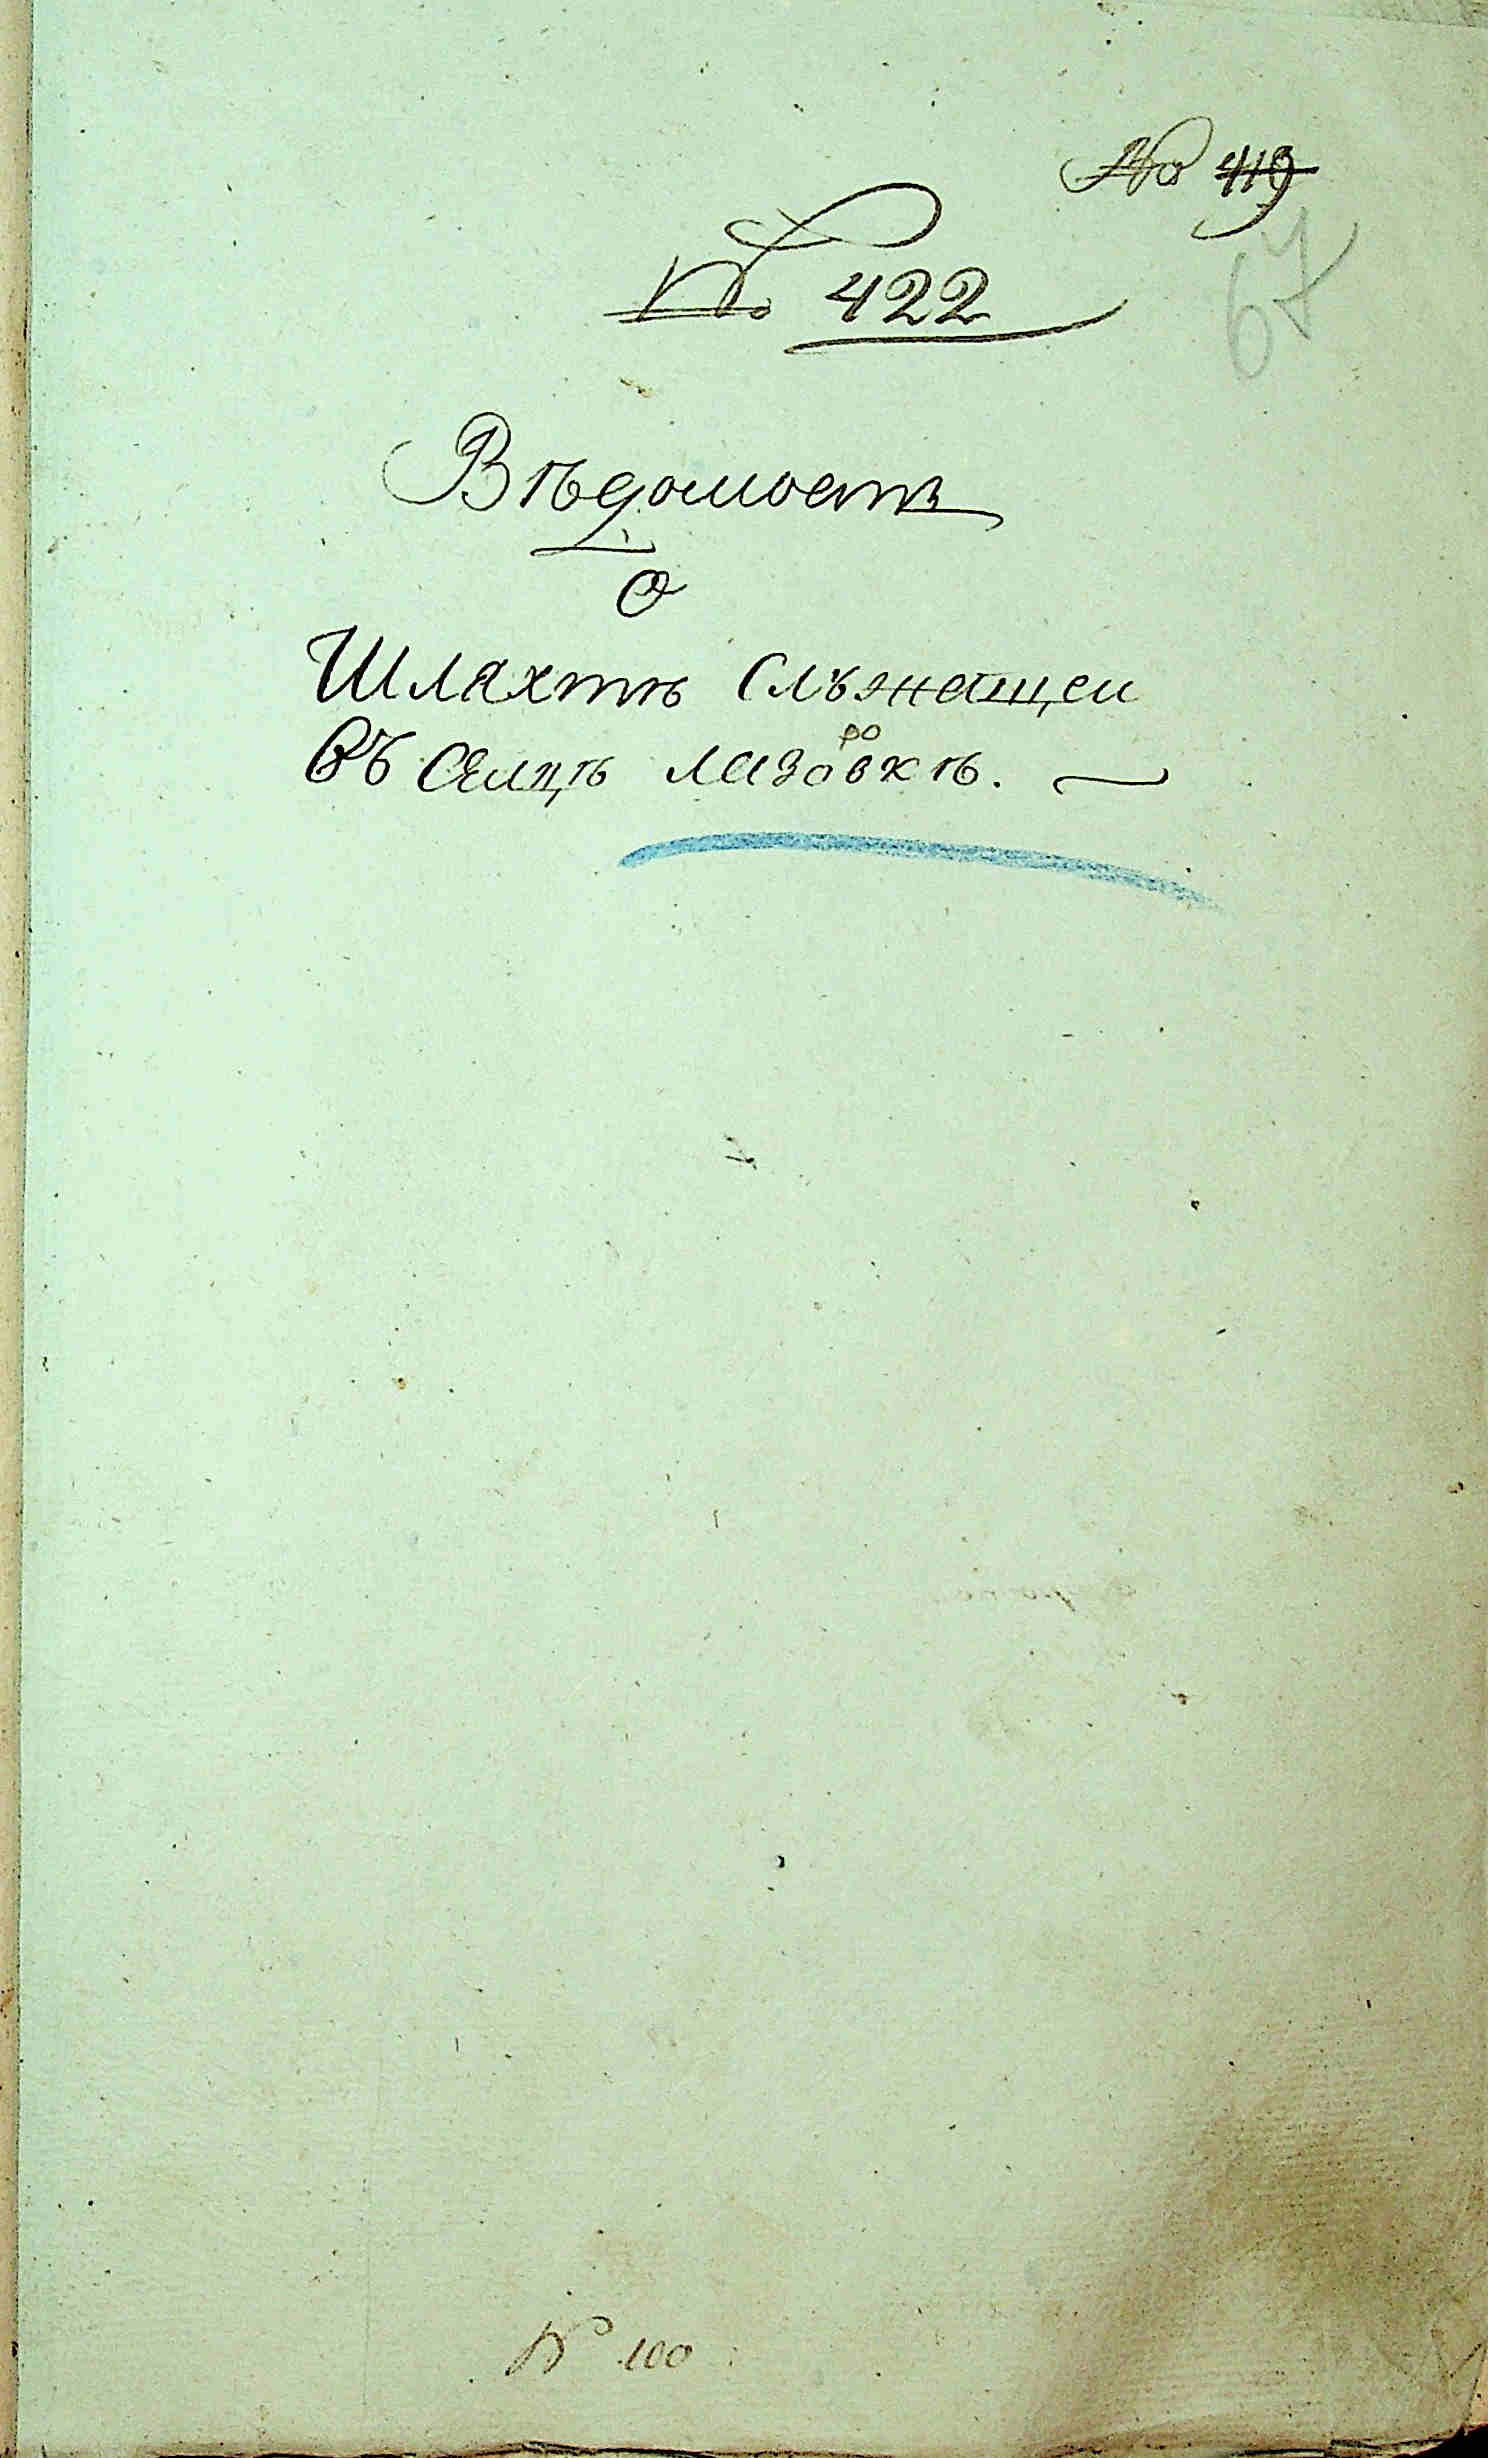 № 419
№ 422
67
Вѣдомость
О
Шляхтѣ Служащеи
Въ Селцѣ лазоровкѣ.
№ 100